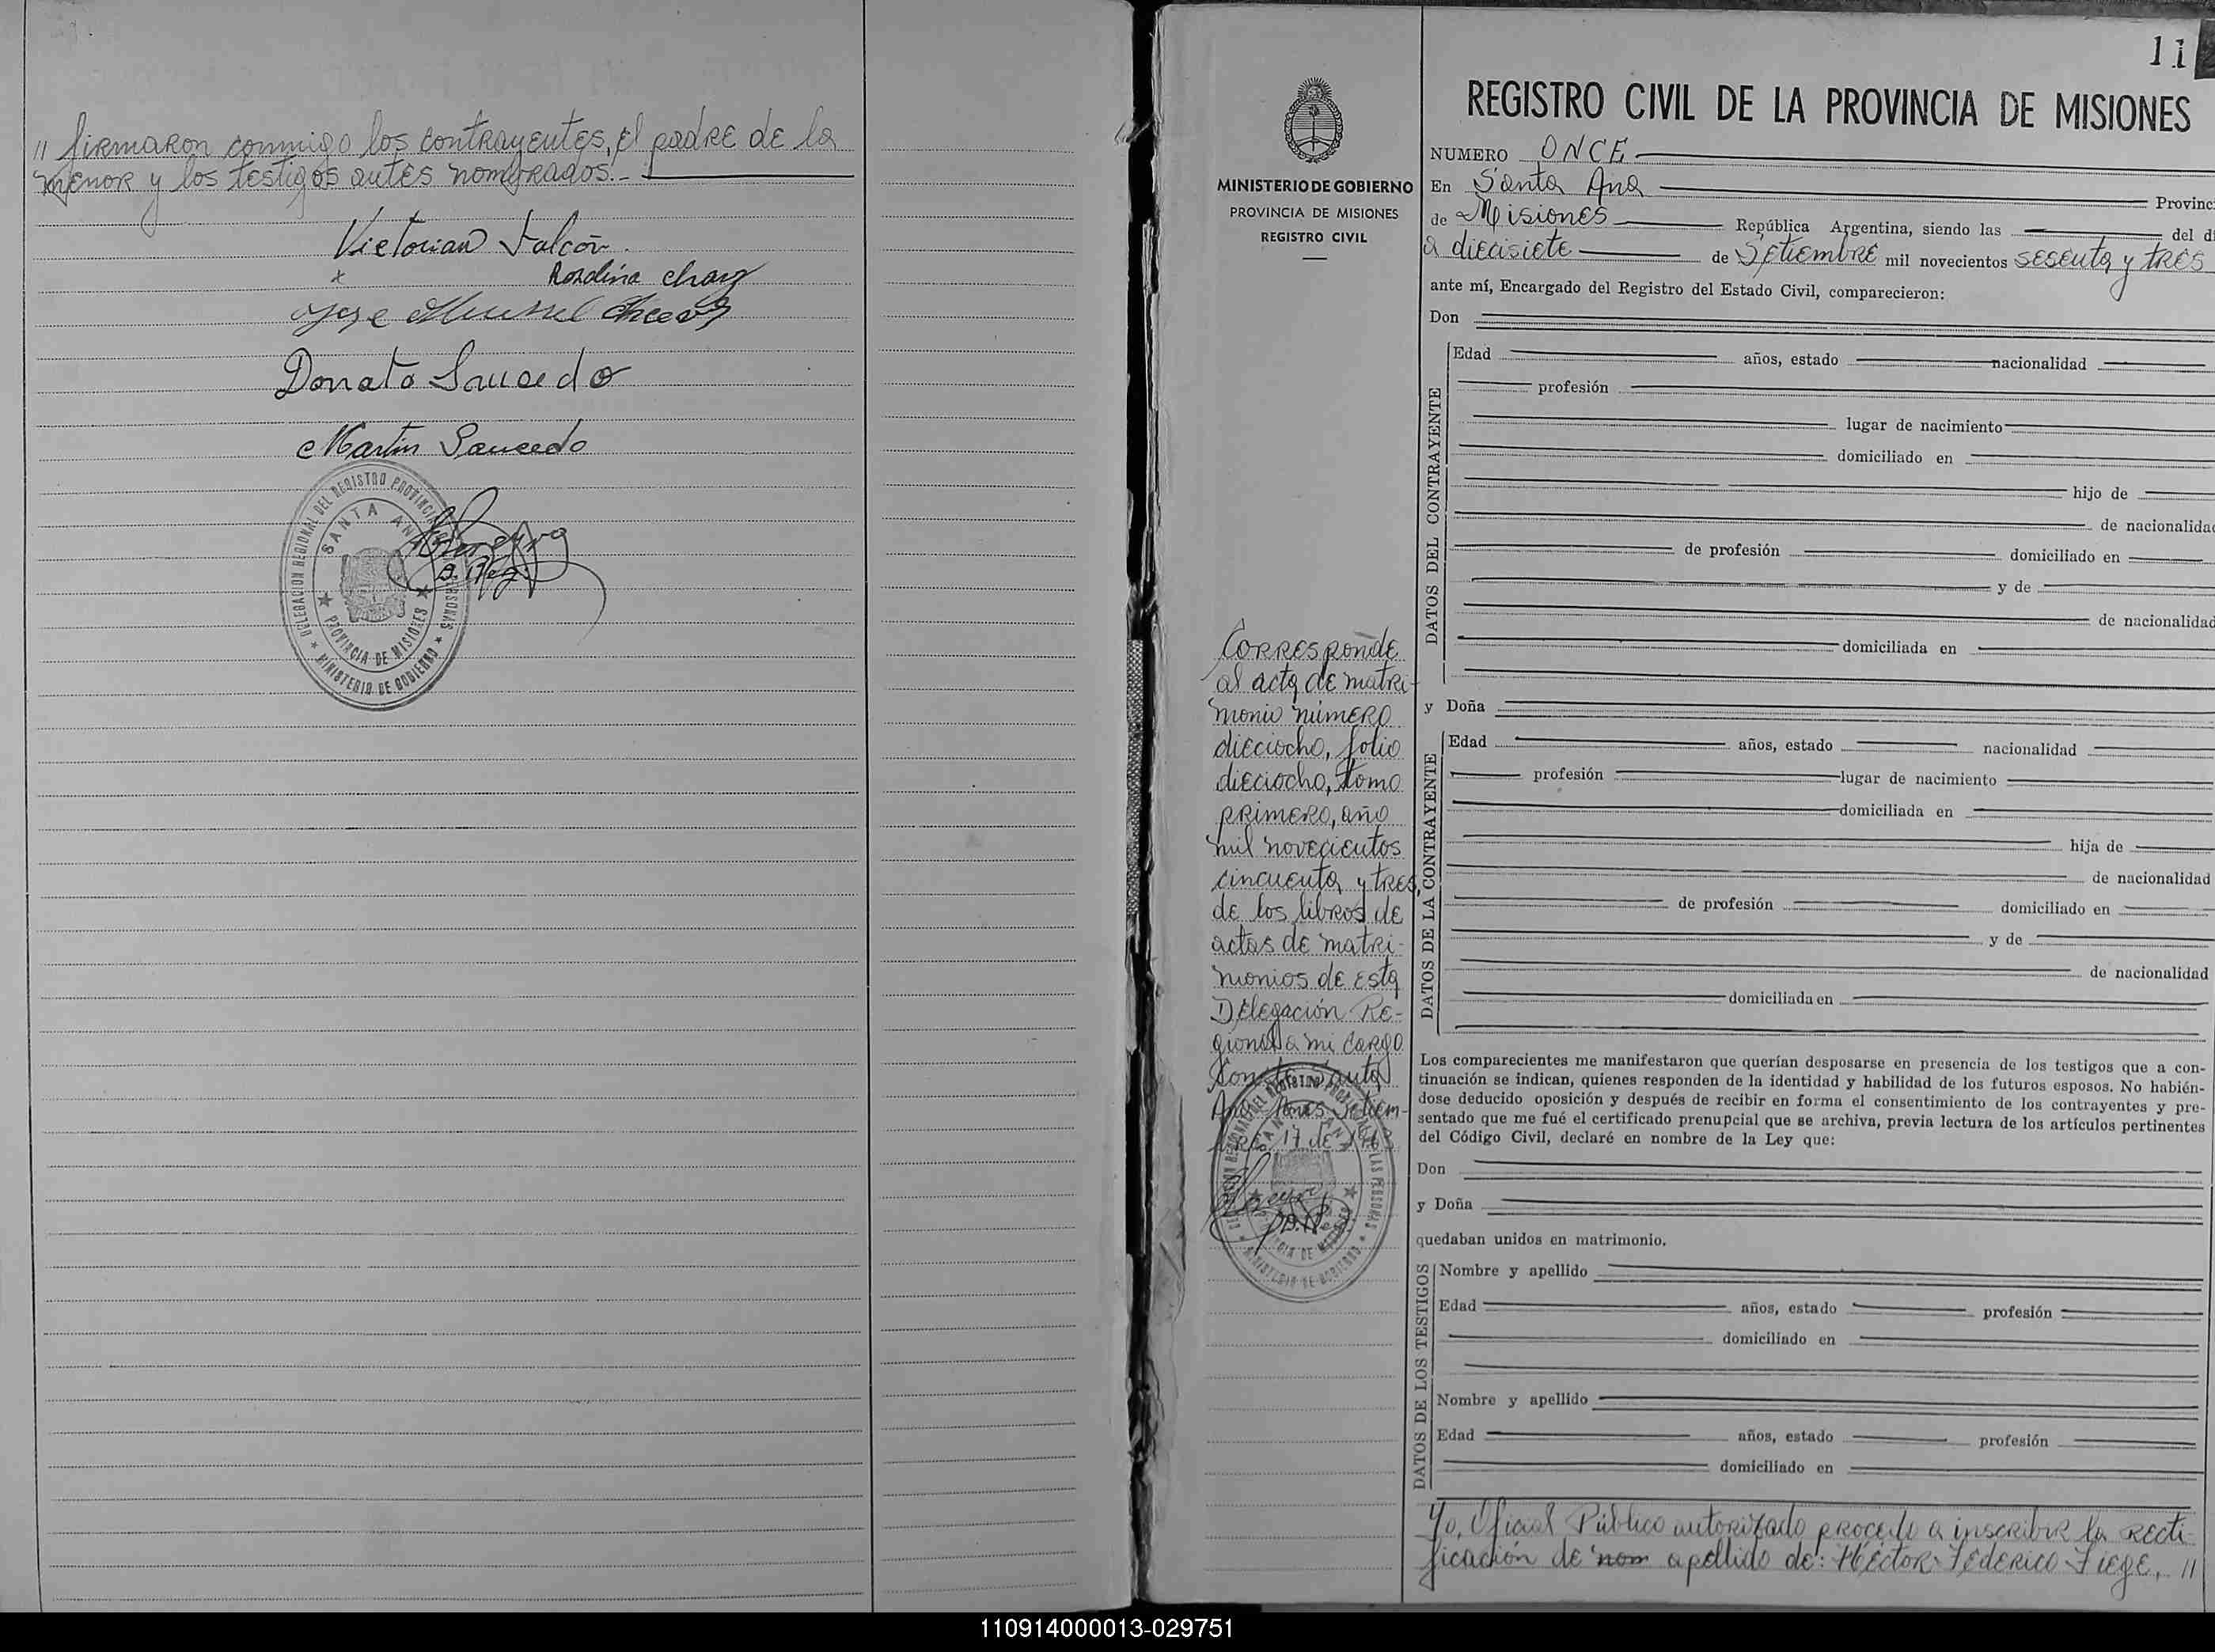 // firmaron conmigo los contrayentes, el padre de la
menor y los testigos antes nombrados.-
Victorian Falcón
x Rosalina Chavez
Jose Manuel Chavez
Donato Saucedo
Martin Saucedo
DELEGACION REGIONAL DEL REGISTRO PROVINCIAL
PERSONAS
SANTA ANA
PROVINCIA DE MISIONES
MINISTERIO DE GOBIERNO
D. Reg.
11
MINISTERIO DE GOBIERNO
PROVINCIA DE MISIONES
REGISTRO CIVIL
Corresponde
al acta de matri-
monio número
dieciocho, folio
dieciocho, tomo
primero, año
mil novecientos
cincuenta y tres,
de los libros de
actas de matri-
monios de esta
Delegación Re-
gional a mi cargo
Conste. Santa
Ana, Mnes. Setiem-
bre 17 de 1963
REGISTRO CIVIL DE LA PROVINCIA DE MISIONES
NUMERO ONCE
En Santa Ana Provinc
de Misiones República Argentina, siendo las del dí
a diecisiete de Setiembre mil novecientos sesenta y tres
ante mí, Encargado del Registro del Estado Civil, comparecieron:
Don
DATOS DEL CONTRAYENTE
Edad años, estado nacionalidad
profesión
lugar de nacimiento
domiciliado en
hijo de
de nacionalidad
de profesión domiciliado en
y de
de nacionalidad
domiciliada en
y Doña
DATOS DE LA CONTRAYENTE
Edad años, estado nacionalidad
profesión lugar de nacimiento
domiciliada en
hija de
de nacionalidad
de profesión domiciliado en
y de
de nacionalidad
domiciliada en
Los comparecientes me manifestaron que querían desposarse en presencia de los testigos que a con-
tinuación se indican, quienes responden de la identidad y habilidad de los futuros esposos. No habién-
dose deducido oposición y después de recibir en forma el consentimiento de los contrayentes y pre-
sentado que me fué el certificado prenupcial que se archiva, previa lectura de los artículos pertinentes
del Código Civil, declaré en nombre de la Ley que:
Don
y Doña
quedaban unidos en matrimonio.
DATOS DE LOS TESTIGOS
Nombre y apellido
Edad años, estado profesión
domiciliado en
Nombre y apellido
Edad años, estado profesión
domiciliado en
Yo, Oficial Público autorizado procedo a inscribir la recti-
ficación de nom apellido de: Héctor Federico Fiege, //
110914000013-029751